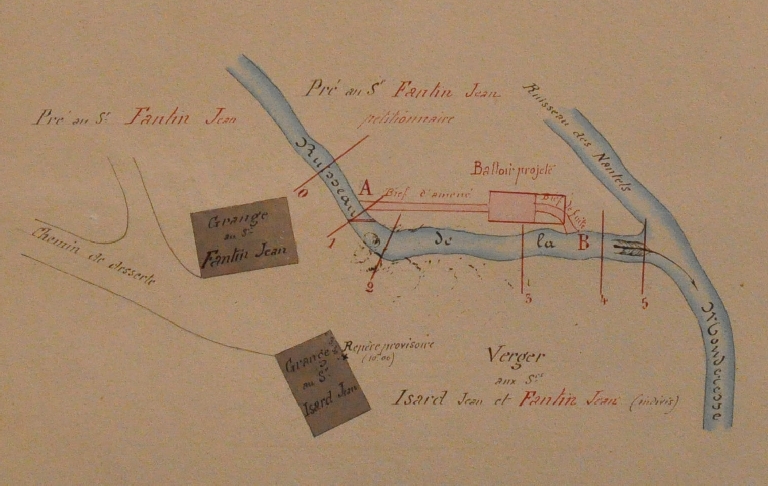 Pré au Sr Fantin Jean
pétitionnaire
Pré au Sr Fantin Jean
Ruisseau des Nantets
Ruisseau de la
Battoir projeté
A
Bief d'amené
Bief de fuite
B
0
1
2
3
4
5
Grange
au Sr
Fantin Jean
Chemin de desserte
Grange
au Sr
Isard Jean
Repère provisoire
(10.00)
Verger
aux Srs
Isard Jean et Fantin Jean (indivis)